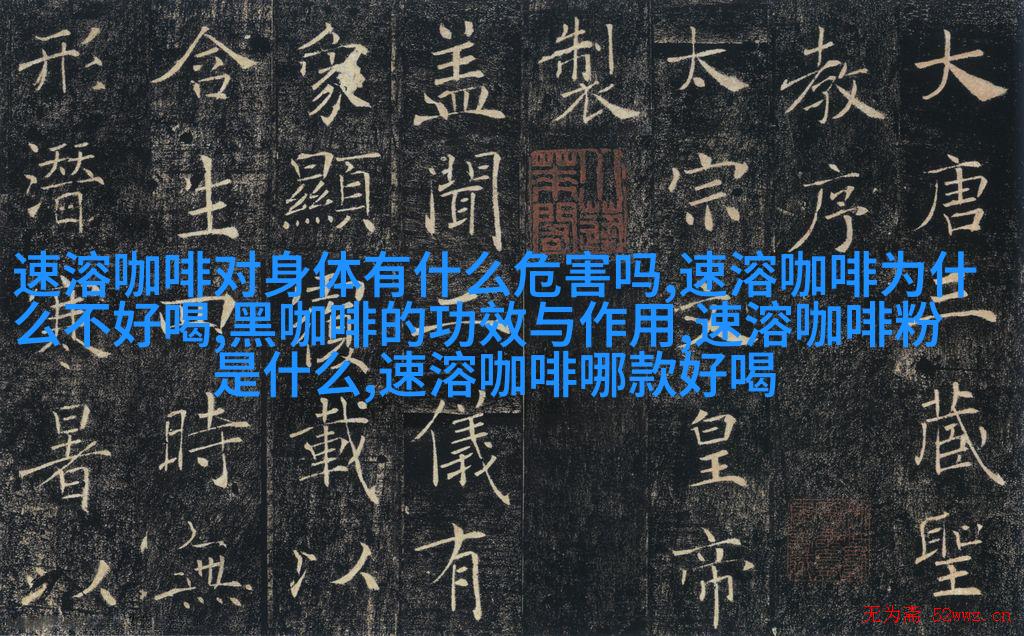 大唐三藏聖
教序
太宗文皇帝
製
盖聞二儀有
象顯覆載以
含生四時無
形潛寒暑以
速溶咖啡对身体有什么危害吗,速溶咖啡为什
么不好喝,黑咖啡的功效与作用,速溶咖啡粉
是什么,速溶咖啡哪款好喝
无为斋 52wwz.cn